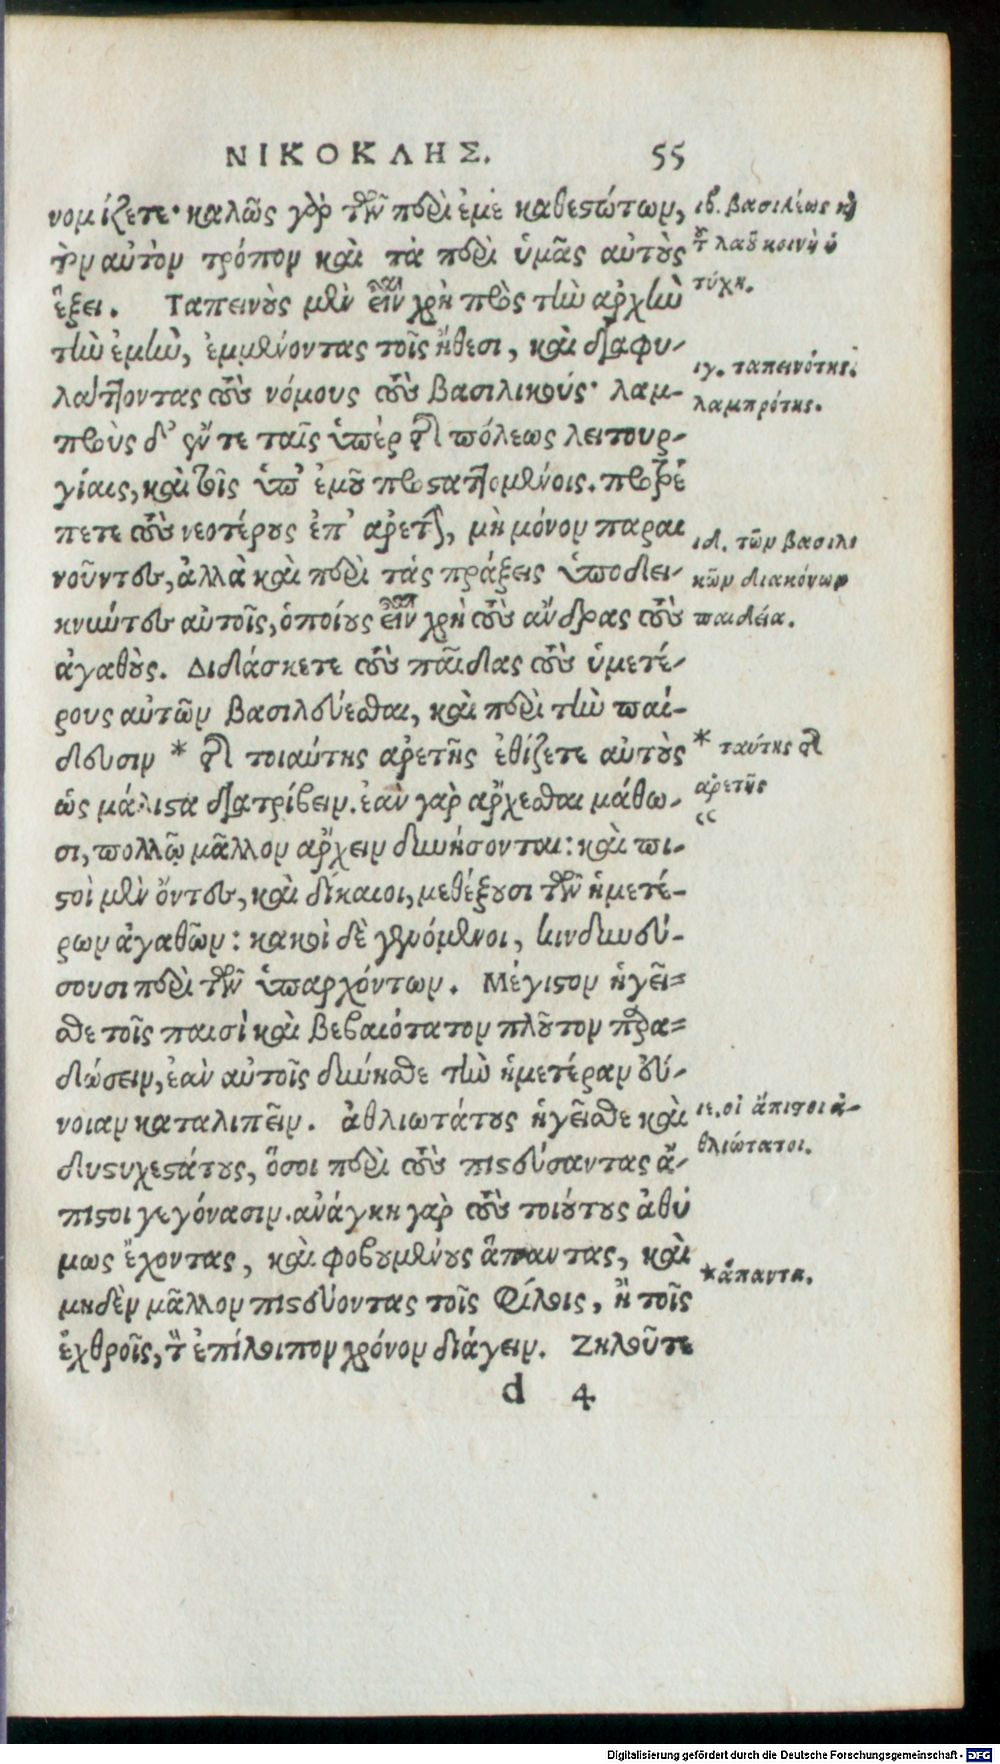 ΝΙΚΟΚΛΗΣ. 55
νομίζετε· καλῶς γὰρ τῶν περὶ ἐμὲ καθεστώτων,
τὸν αὐτὸν τρόπον καὶ τὰ περὶ ὑμᾶς αὐτοὺς
ἕξει. Ταπεινοὺς μὲν εἶναι χρὴ πρὸς τὴν ἀρχὴν
τὴν ἐμὴν, ἐμμένοντας τοῖς ἤθεσι, καὶ διαφυ-
λάττοντας τοὺς νόμους τοὺς βασιλικούς· λαμ-
προὺς δ' ἔν τε ταῖς ὑπὲρ τῆς πόλεως λειτουρ-
γίαις, καὶ τοῖς ὑπ' ἐμοῦ προσταττομένοις. προτρέ
πετε τοὺς νεοτέρους ἐπ' ἀρετὴν, μὴ μόνον παραι
νοῦντες, ἀλλὰ καὶ περὶ τὰς πράξεις ὑποδει-
κνύντες αὐτοῖς, ὁποίους εἶναι χρὴ τοὺς ἄνδρας τοὺς
ἀγαθούς. Διδάσκετε τοὺς παῖδας τοὺς ὑμετέ-
ρους αὐτῶν βασιλεύεσθαι, καὶ περὶ τὴν παί-
δευσιν * τῆς τοιαύτης ἀρετῆς ἐθίζετε αὐτοὺς
ὡς μάλιστα διατρίβειν. ἐὰν γὰρ ἄρχεσθαι μάθω-
σι, πολλῷ μᾶλλον ἄρχειν δυνήσονται: καὶ πι-
στοὶ μὲν ὄντες, καὶ δίκαιοι, μεθέξουσι τῶν ἡμετέ-
ρων ἀγαθῶν: κακοὶ δὲ γενόμενοι, κινδυνεύ-
σουσι περὶ τῶν ὑπαρχόντων. Μέγιστον ἡγεῖ-
σθε τοῖς παισὶ καὶ βεβαιότατον πλοῦτον παρα-
δώσειν, ἐὰν αὐτοῖς δύνησθε τὴν ἡμετέραν εὔ-
νοιαν καταλιπεῖν. ἀθλιωτάτους ἡγεῖσθε καὶ
δυστυχεστάτους, ὅσοι περὶ τοὺς πιστεύσαντας ἄ-
πιστοι γεγόνασιν. ἀνάγκη γὰρ τοὺς τοιούτους ἀθύ
μως ἔχοντας, καὶ φοβουμένους ἅπαντας, καὶ
μηδὲν μᾶλλον πιστεύοντας τοῖς φίλοις, ἢ τοῖς
ἐχθροῖς, τὸν ἐπίλοιπον χρόνον διάγειν. Ζηλοῦτε
d 4
ιβ. βασιλέως καὶ
τοῦ λαοῦ κοινὴ ἡ
τύχη.
ιγ. ταπεινότης.
λαμπρότης.
ιδ. τῶν βασιλι
κῶν διακόνων
παιδεία.
* ταύτης τῆς
ἀρετῆς
“
ιε. οἱ ἄπιστοι ἀ-
θλιώτατοι.
* ἅπαντα.
Digitalisierung gefördert durch die Deutsche Forschungsgemeinschaft - DFG